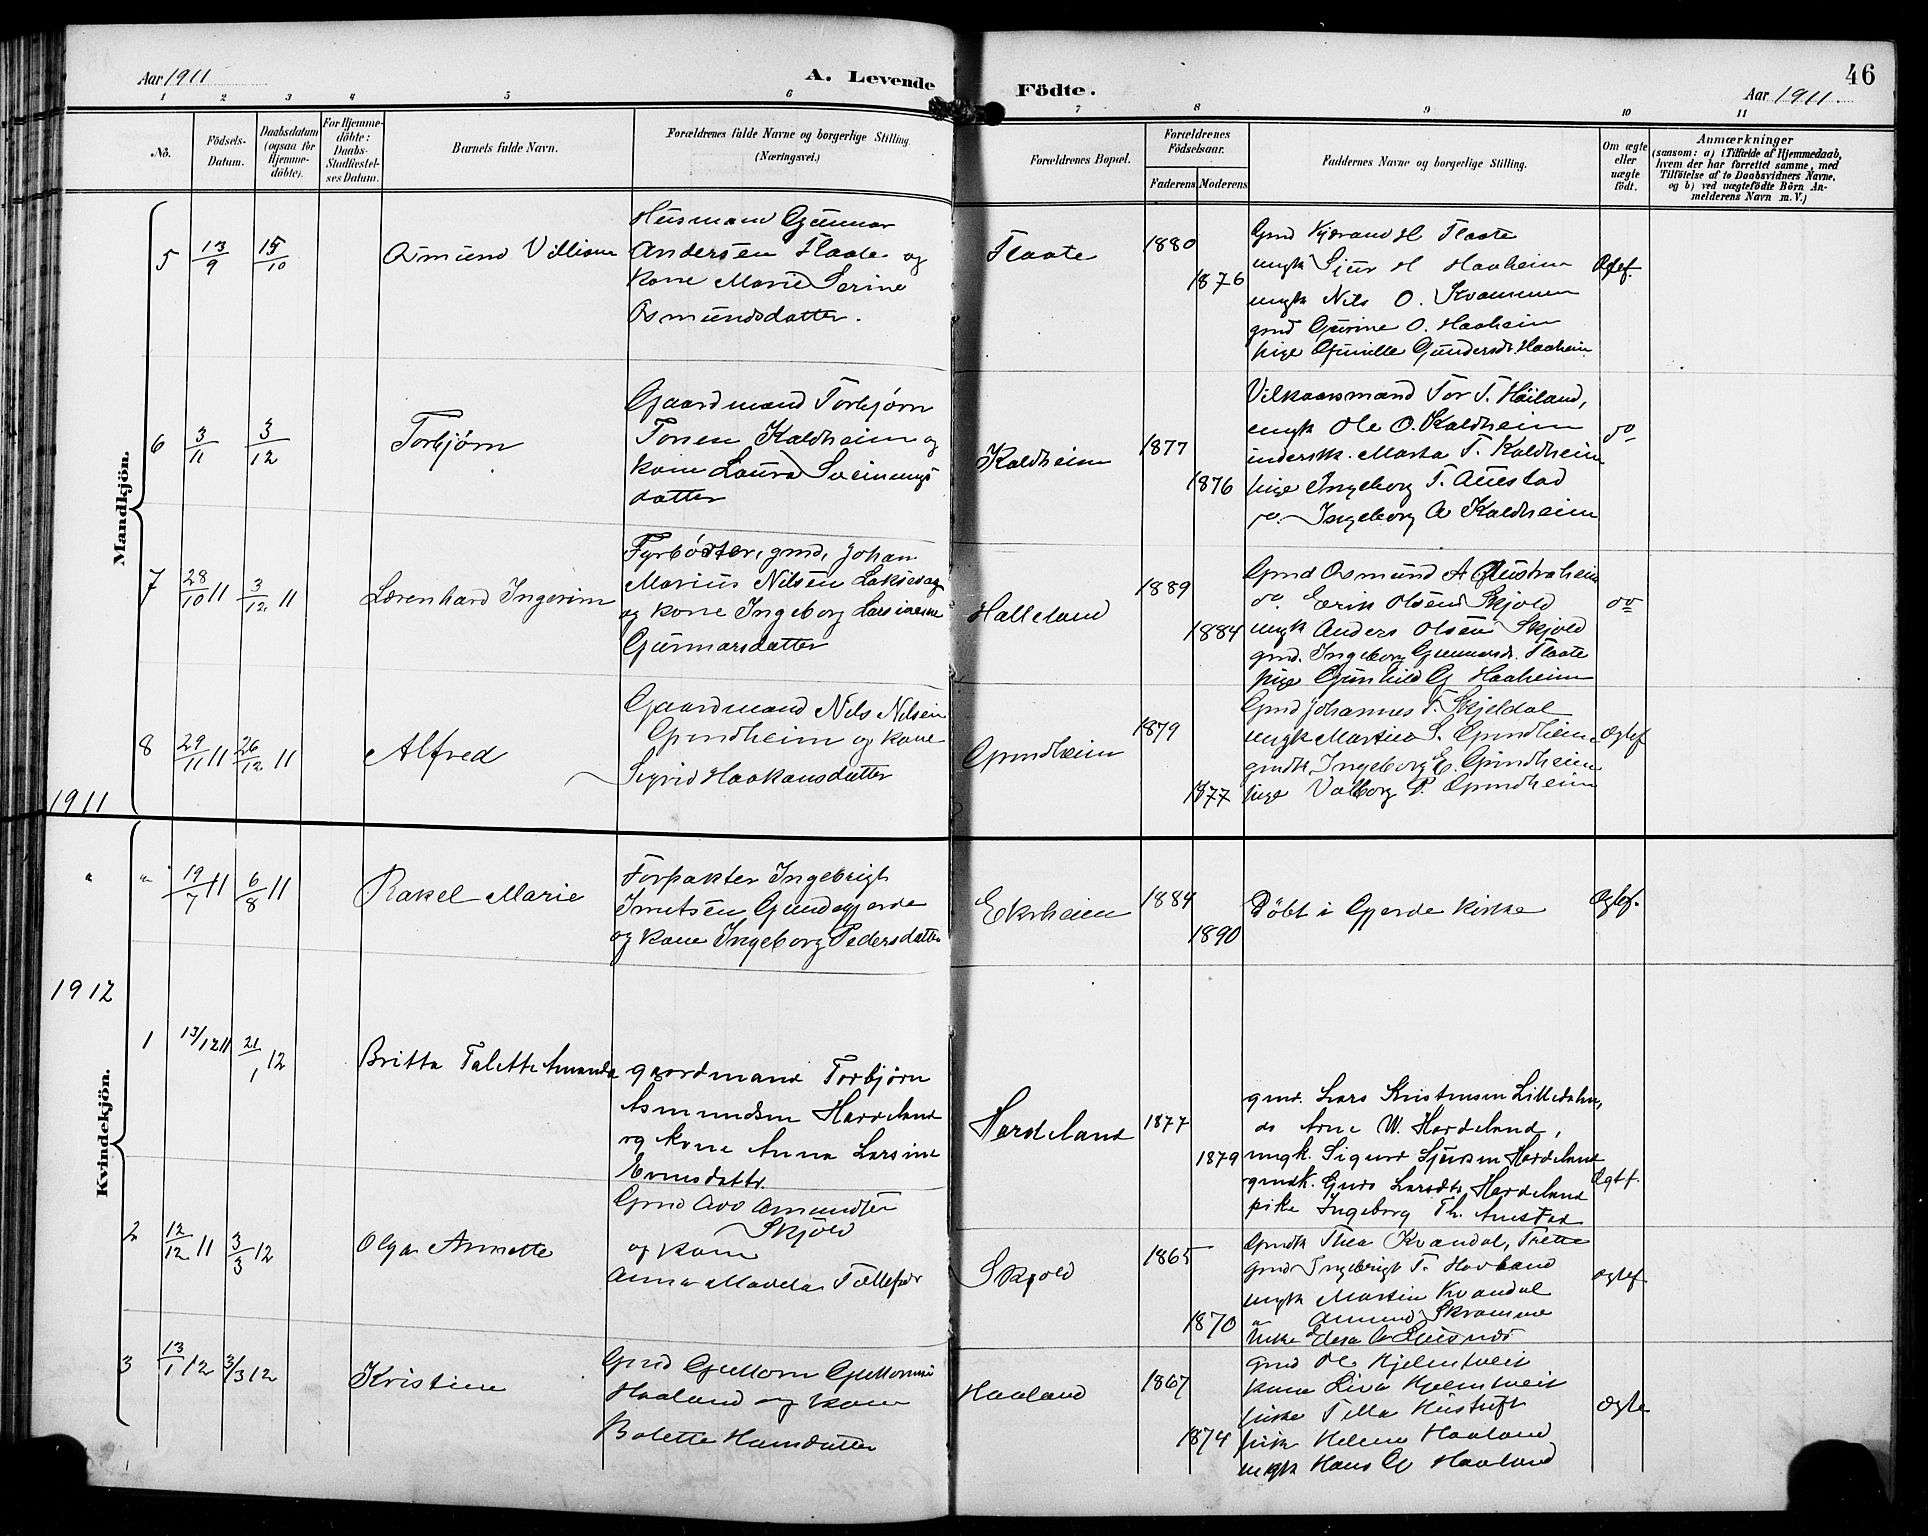 Aar 1911
A. Levende Födte.
46
Aar 1911.
1 2 3 4 5 6 7 8 9 10 11
No.
Födsels-
Datum.
Daabsdatum
(ogsaa for
Hjemme-
döbte).
For Hjemme-
döbte:
Daabs-
Stadfæstel-
ses Datum.
Barnets fulde Navn.
Forældrenes fulde Navne og borgerlige Stilling
(Næringsvei.)
Forældrenes Bopæl.
Forældrenes
Födselsaar.
Faderens Moderens
Faddernes Navne og borgerlige Stilling.
Om ægte
eller
uægte
födt.
Anmærkninger
(saasom: a) i Tilfælde af Hjemmedaab,
hvem der har forrettet samme, med
Tilföielse af to Daabsvidners Navne,
og b) ved uægtefödte Börn An-
melderens Navn m. V.)
Mandkjön.
5
13/9
15/10
Osmund Villiam
Husmand Gunnar
Andersen Flaate og
kone Marie Serine
Osmundsdatter.
Flaate
1880
1876
Gmd Kjærand H Flaate
ungk Sjur H Haaheim
ungk Nils O. Kvammen
gmd Gurine O. Haaheim
pige Gunille Gundersdr Haaheim
Ægtef.
6
3/11
3/12
Torbjørn
Gaardmand Torbjørn
Torsen Kaldheim og
kone Laura Sveinungs
datter
Kaldheim
1877
1876
Vilkaarsmand Tor T. Høiland,
ungk Ole O. Kaldheim
indersk. Marta T. Kaldheim
pige Ingeborg T. Austad
do. Ingeborg A Kaldheim
do
7
28/10 11
3/12 11
Lærenhard Ingerim
Fyrbøter, gmd, Johan
Marius Nilsen Laksevaag
og kone Ingeborg Larsine
Gunnarsdatter
Halleland
1889
1884
Gmd Osmund A Austraheim
do. Eerik Olsen Skjold
ungk Anders Olsen Skjold
gmd. Ingeborg Gunnarsdr. Flaate
pige Gunhild G Haaheim
do
8
29/11 11
26/12 11
Alfred
Gaardmand Nils Nilsen
Grindheim og kone
Sigrid Haakonsdatter
Grindheim
1879
1877
Gmd Johannes T. Skjeldal
ungk Martin S. Grindheim
gmdk Ingeborg E. Grindheim
pige Valborg P. Grindheim
Ægtef
1911
Kvindekjön.
" "
19/7 11
6/8 11
Rakel Marie
Forpakter Ingebrigt
Knutsen Gundegjerde
og kone Ingeborg Pedersdatter
Ekrheim
1884
1890
Døbt i Gjerde kirke
Ægtef.
1912
1
13/12 11
21/1 12
Britta Talette Amanda
gaardmand Torbjørn
Asmundsen Hardeland
og kone Anna Larsine
Hardeland
1877
1879
gmd. Lars Kristensen Lilledalen,
do Arne W. Hardeland,
ungk. Sigurd Sjursen Hardeland
gmdk. Guro Larsdtr Hardeland
pike Ingeborg Th. Austad
Ægtf.
2
12/12 11
3/3 12
Olga Annette
Gmd Amundsen
Skjold
og kone
Anna
Skjold
1865
1870
Gmdk Thea Kvandal,
Gmd Ingebrigt T. Hovland
ungk Martin Kvandal
" Amund Skromme
ægtef
3
13/1 12
3/3 12
Kristine
Gmd Guttorm Guttormsen
Haaland og kone
Bolette Hansdatter
Haaland
1867
1874
gmd Ole Hjelmtveit
kona Liva Hjelmtveit
pike Tilla Hustuft
pike Helene Haaland
ungk Hans G Haaland
Ægte